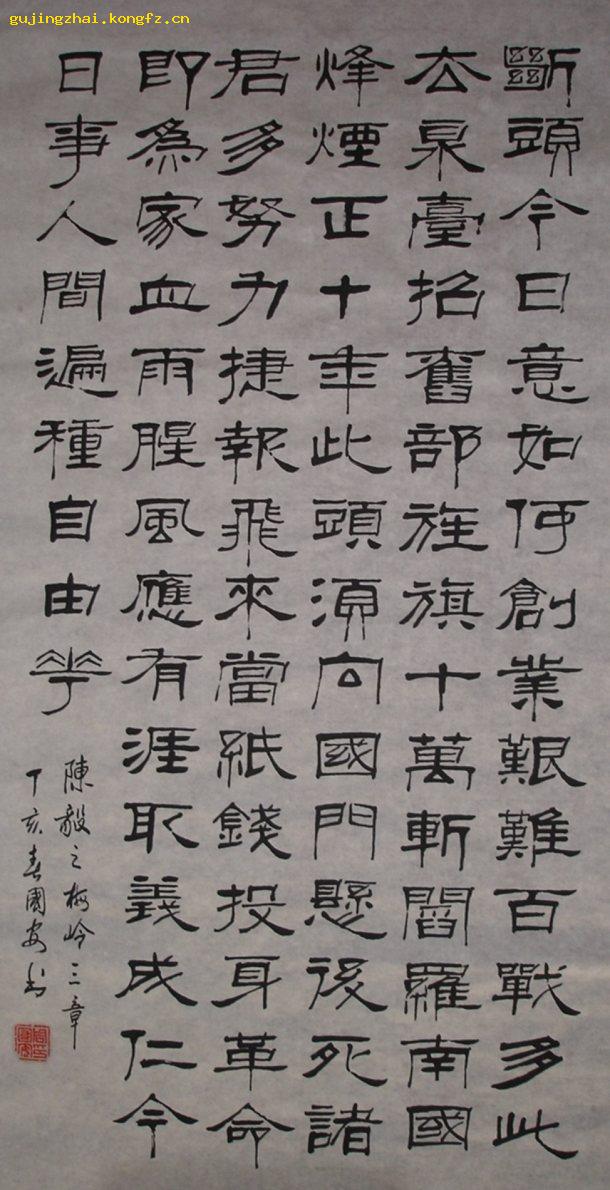 gujingzhai.kongfz.cn
斷頭今日意如何創業艱難百戰多此
去泉臺招舊部旌旗十萬斬閻羅南國
烽煙正十年此頭須向國門懸後死諸
君多努力捷報飛來當紙錢投身革命
即為家血雨腥風應有涯取義成仁今
日事人間遍種自由花
陳毅之梅岭三章
丁亥春國安书